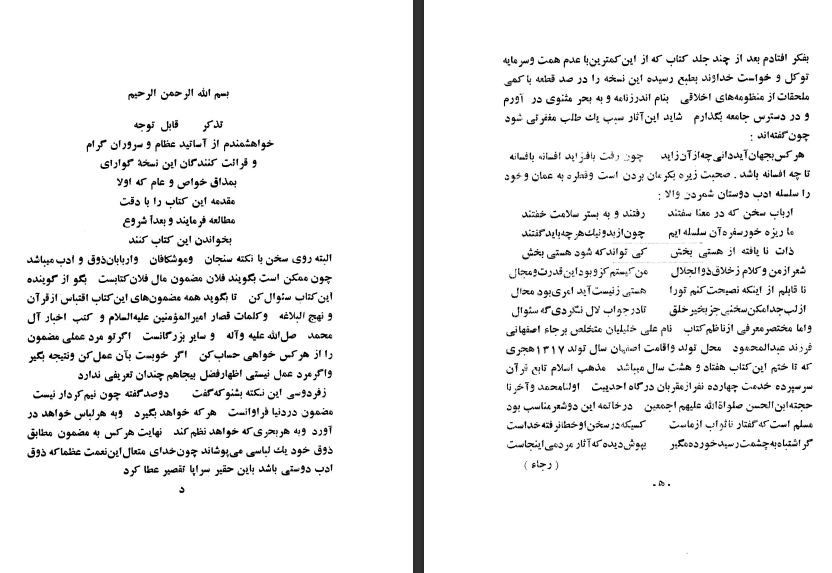 بسم الله الرحمن الرحیم
تذکر قابل توجه
خواهشمندم از آساتید عظام و سروران گرام
و قرائت کنندگان این نسخهٔ گوارای
بمذاق خواص و عام که اولا
مقدمه این کتاب را با دقت
مطالعه فرمایند و بعداً شروع
بخواندن این کتاب کنند
البته روی سخن با نکته سنجان وموشکافان واربابان‌ذوق و ادب میباشد
چون ممکن است بگویند فلان مضمون مال فلان‌کتابست بگو از گوینده
این‌کتاب سئوال‌کن تا بگوید همه مضمون‌های این‌کتاب اقتباس ازقرآن
و نهج البلاغه وکلمات قصار امیرالمؤمنین علیه‌السلام و کتب اخبار آل
محمد صل‌الله علیه وآله و سایر بزرگانست اگرتو مرد عملی مضمون
را از هرکس خواهی حساب‌کن اگر خوبست بآن عمل‌کن ونتیجه بگیر
واگرمرد عمل نیستی اظهارفضل بیجاهم چندان تعریفی ندارد
زفردوسی این نکته بشنوکه‌گفت دوصدگفته چون نیم‌کردار نیست
مضمون دردنیا فراوانست هرکه خواهد بگیرد وبه هرلباس خواهد در
آورد وبه هربحری‌که خواهد نظم‌کند نهایت هرکس به مضمون مطابق
ذوق خود یك لباسی می‌پوشاند چون‌خدای متعال‌این‌نعمت عظما‌که ذوق
ادب دوستی باشد باین حقیر سراپا تقصیر عطا کرد
د
بفکر افتادم بعد از چند جلد کتاب که از این‌کمترین‌با عدم همت وسرمایه
توکل و خواست خداوند بطبع رسیده این نسخه را در صد قطعه با‌کمی
ملحقات از منظومه‌های اخلاقی بنام اندرزنامه و به بحر مثنوی در آورم
و در دسترس جامعه بگذارم شاید این‌آثار سبب یك طلب مغفرتی شود
چون‌گفته‌اند :
هرکس‌بجهان‌آیددانی‌چه‌ازآن‌زاید چون رفت بافزاید افسانه بافسانه
تا چه افسانه باشد . صحبت زیره بکرمان بردن است وقطره به عمان وخود
را سلسله ادب دوستان شمردن والا :
ارباب سخن که در معنا سفتند رفتند و به بستر سلامت خفتند
ما ریزه خورسفره‌آن سلسله ایم چون‌ازبدونیك‌هرچه‌بایدگفتند
ذات نا یافته از هستی بخش کی تواند‌که شود هستی بخش
شعرازمن وکلام زخلاق‌ذوالجلال من‌کیستم‌کزوبوداین‌قدرت‌ومجال
نا قابلم از اینکه نصیحت‌کنم تورا هستی زنیست‌آید امری‌بود محال
ازلب‌جدامکن‌سخنی‌جزبخیرخلق تادرجواب لال نگردی‌گه سئوال
واما مختصرمعرفی ازناظم‌کتاب نام علی خلیلیان متخلص برجاء اصفهانی
فرزند عبدالمحمود محل تولد واقامت اصفهان سال تولد ۱۳۱۷هجری
که تا ختم این‌کتاب هفتاد و هشت سال میباشد مذهب اسلام تابع قرآن
سرسپرده خدمت چهارده نفرازمقربان درگاه احدیت اولنامحمد وآخرنا
حجته‌ابن‌الحسن صلواة‌الله علیهم اجمعین درخاتمه این دوشعرمناسب بود
مسلم است‌که‌گفتار ناثواب ازماست کسیکه‌درسخن‌اوخطانرفته‌خداست
گراشتباه‌به‌چشمت‌رسیدخورده‌مگیر بپوش‌دیده‌که‌آثار مردمی‌اینجاست
( رجاء )
ه